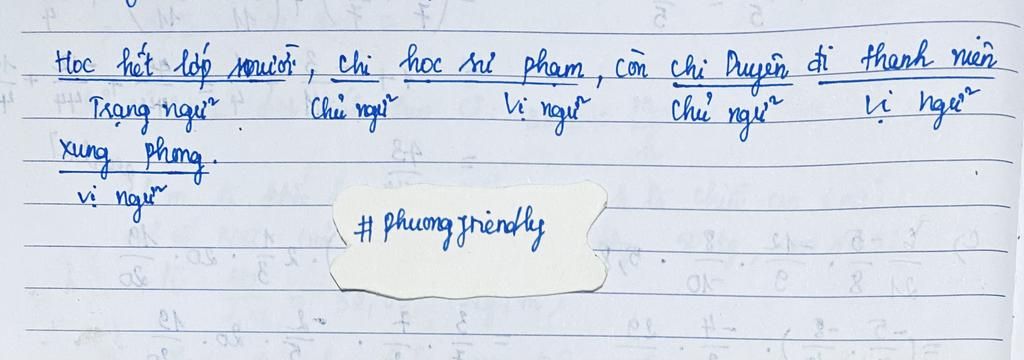 Học hết lớp mười, chị học sư phạm, còn chị Duyên đi thanh niên
Trạng ngữ Chủ ngữ Vị ngữ Chủ ngữ Vị ngữ
xung phong.
vị ngữ
# phuongfriendly